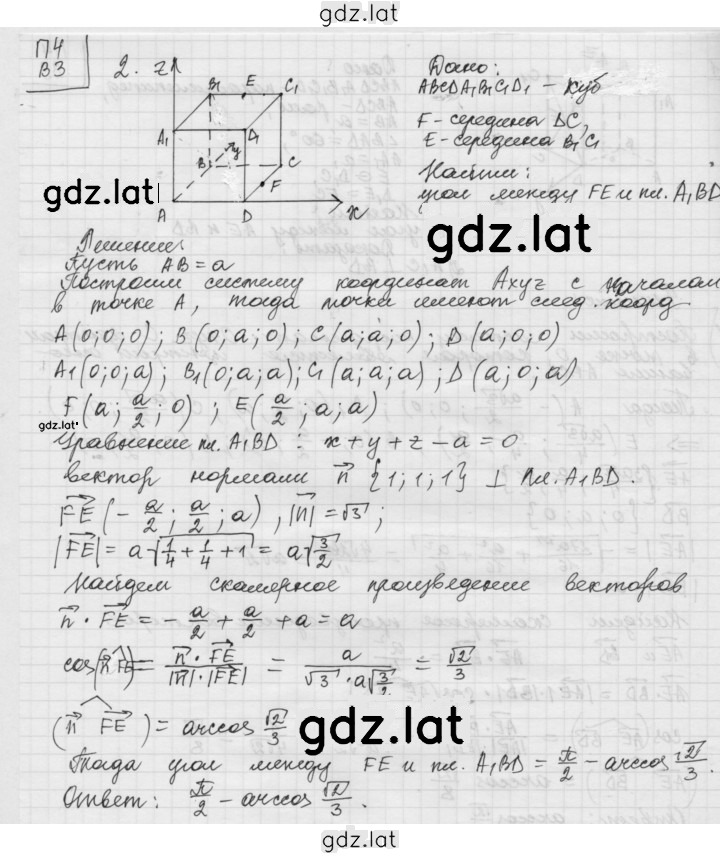 gdz.lat
П4
В3
2. z
B₁ E C₁
A₁ D₁
B y C
F
A D x
Дано:
ABCDA₁B₁C₁D₁ – куб
F – середина DC,
E – середина B₁C₁
Найти:
угол между FE и пл. A₁BD
gdz.lat
gdz.lat
Решение:
Пусть AB = a
Построим систему координат Axyz с началом
в точке A, тогда точки имеют след. коорд
A(0;0;0); B(0;a;0); C(a;a;0); D(a;0;0)
A₁(0;0;a); B₁(0;a;a); C₁(a;a;a); D(a;0;a)
F(a; a/2; 0); E(a/2; a; a)
gdz.lat
Уравнение пл. A₁BD: x+y+z−a=0
вектор нормали n⃗ {1;1;1} ⊥ пл. A₁BD.
FE⃗ (−a/2; a/2; a), |n⃗| = √3;
|FE⃗| = a√(1/4 + 1/4 + 1) = a√(3/2)
Найдем скалярное произведение векторов
n⃗ · FE⃗ = −a/2 + a/2 + a = a
cos(n⃗ FE⃗) = (n⃗ · FE⃗)/(|n⃗| · |FE⃗|) = a/(√3 · a√(3/2)) = √2/3
(n⃗ FE⃗) = arccos √2/3
gdz.lat
Тогда угол между FE и пл. A₁BD = π/2 − arccos √2/3.
Ответ: π/2 − arccos √2/3.
gdz.lat